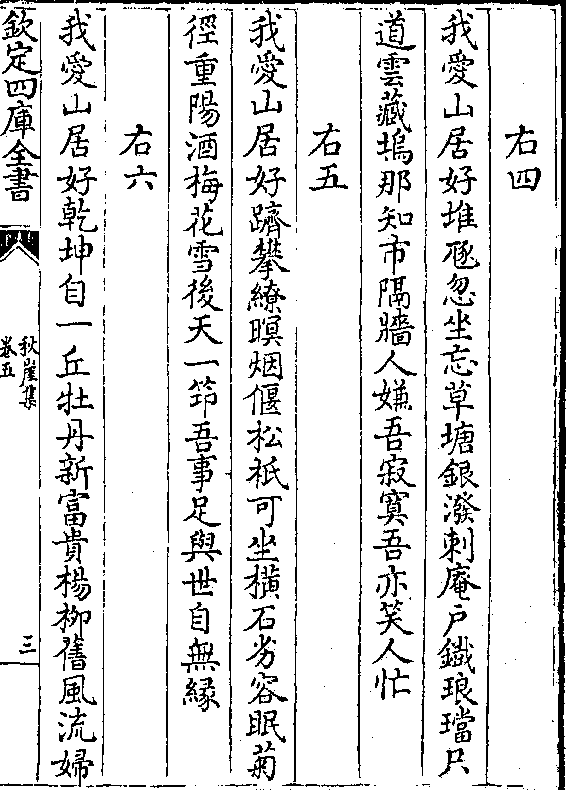 右四
我愛山居好堆豗忽坐忘草塘銀潑刺庵戸鐵琅璫只
道雲藏塢那知市隔牆人嫌吾寂寞吾亦笑人忙
右五
我愛山居好躋攀繚暝烟偃松祇可坐橫石劣容眠菊
徑重陽酒梅花雪後天一笻吾事足與世自無縁
右六
我愛山居好乾坤自一丘牡丹新富貴楊柳舊風流婦
欽定四庫全書
秋崖集
卷五
三